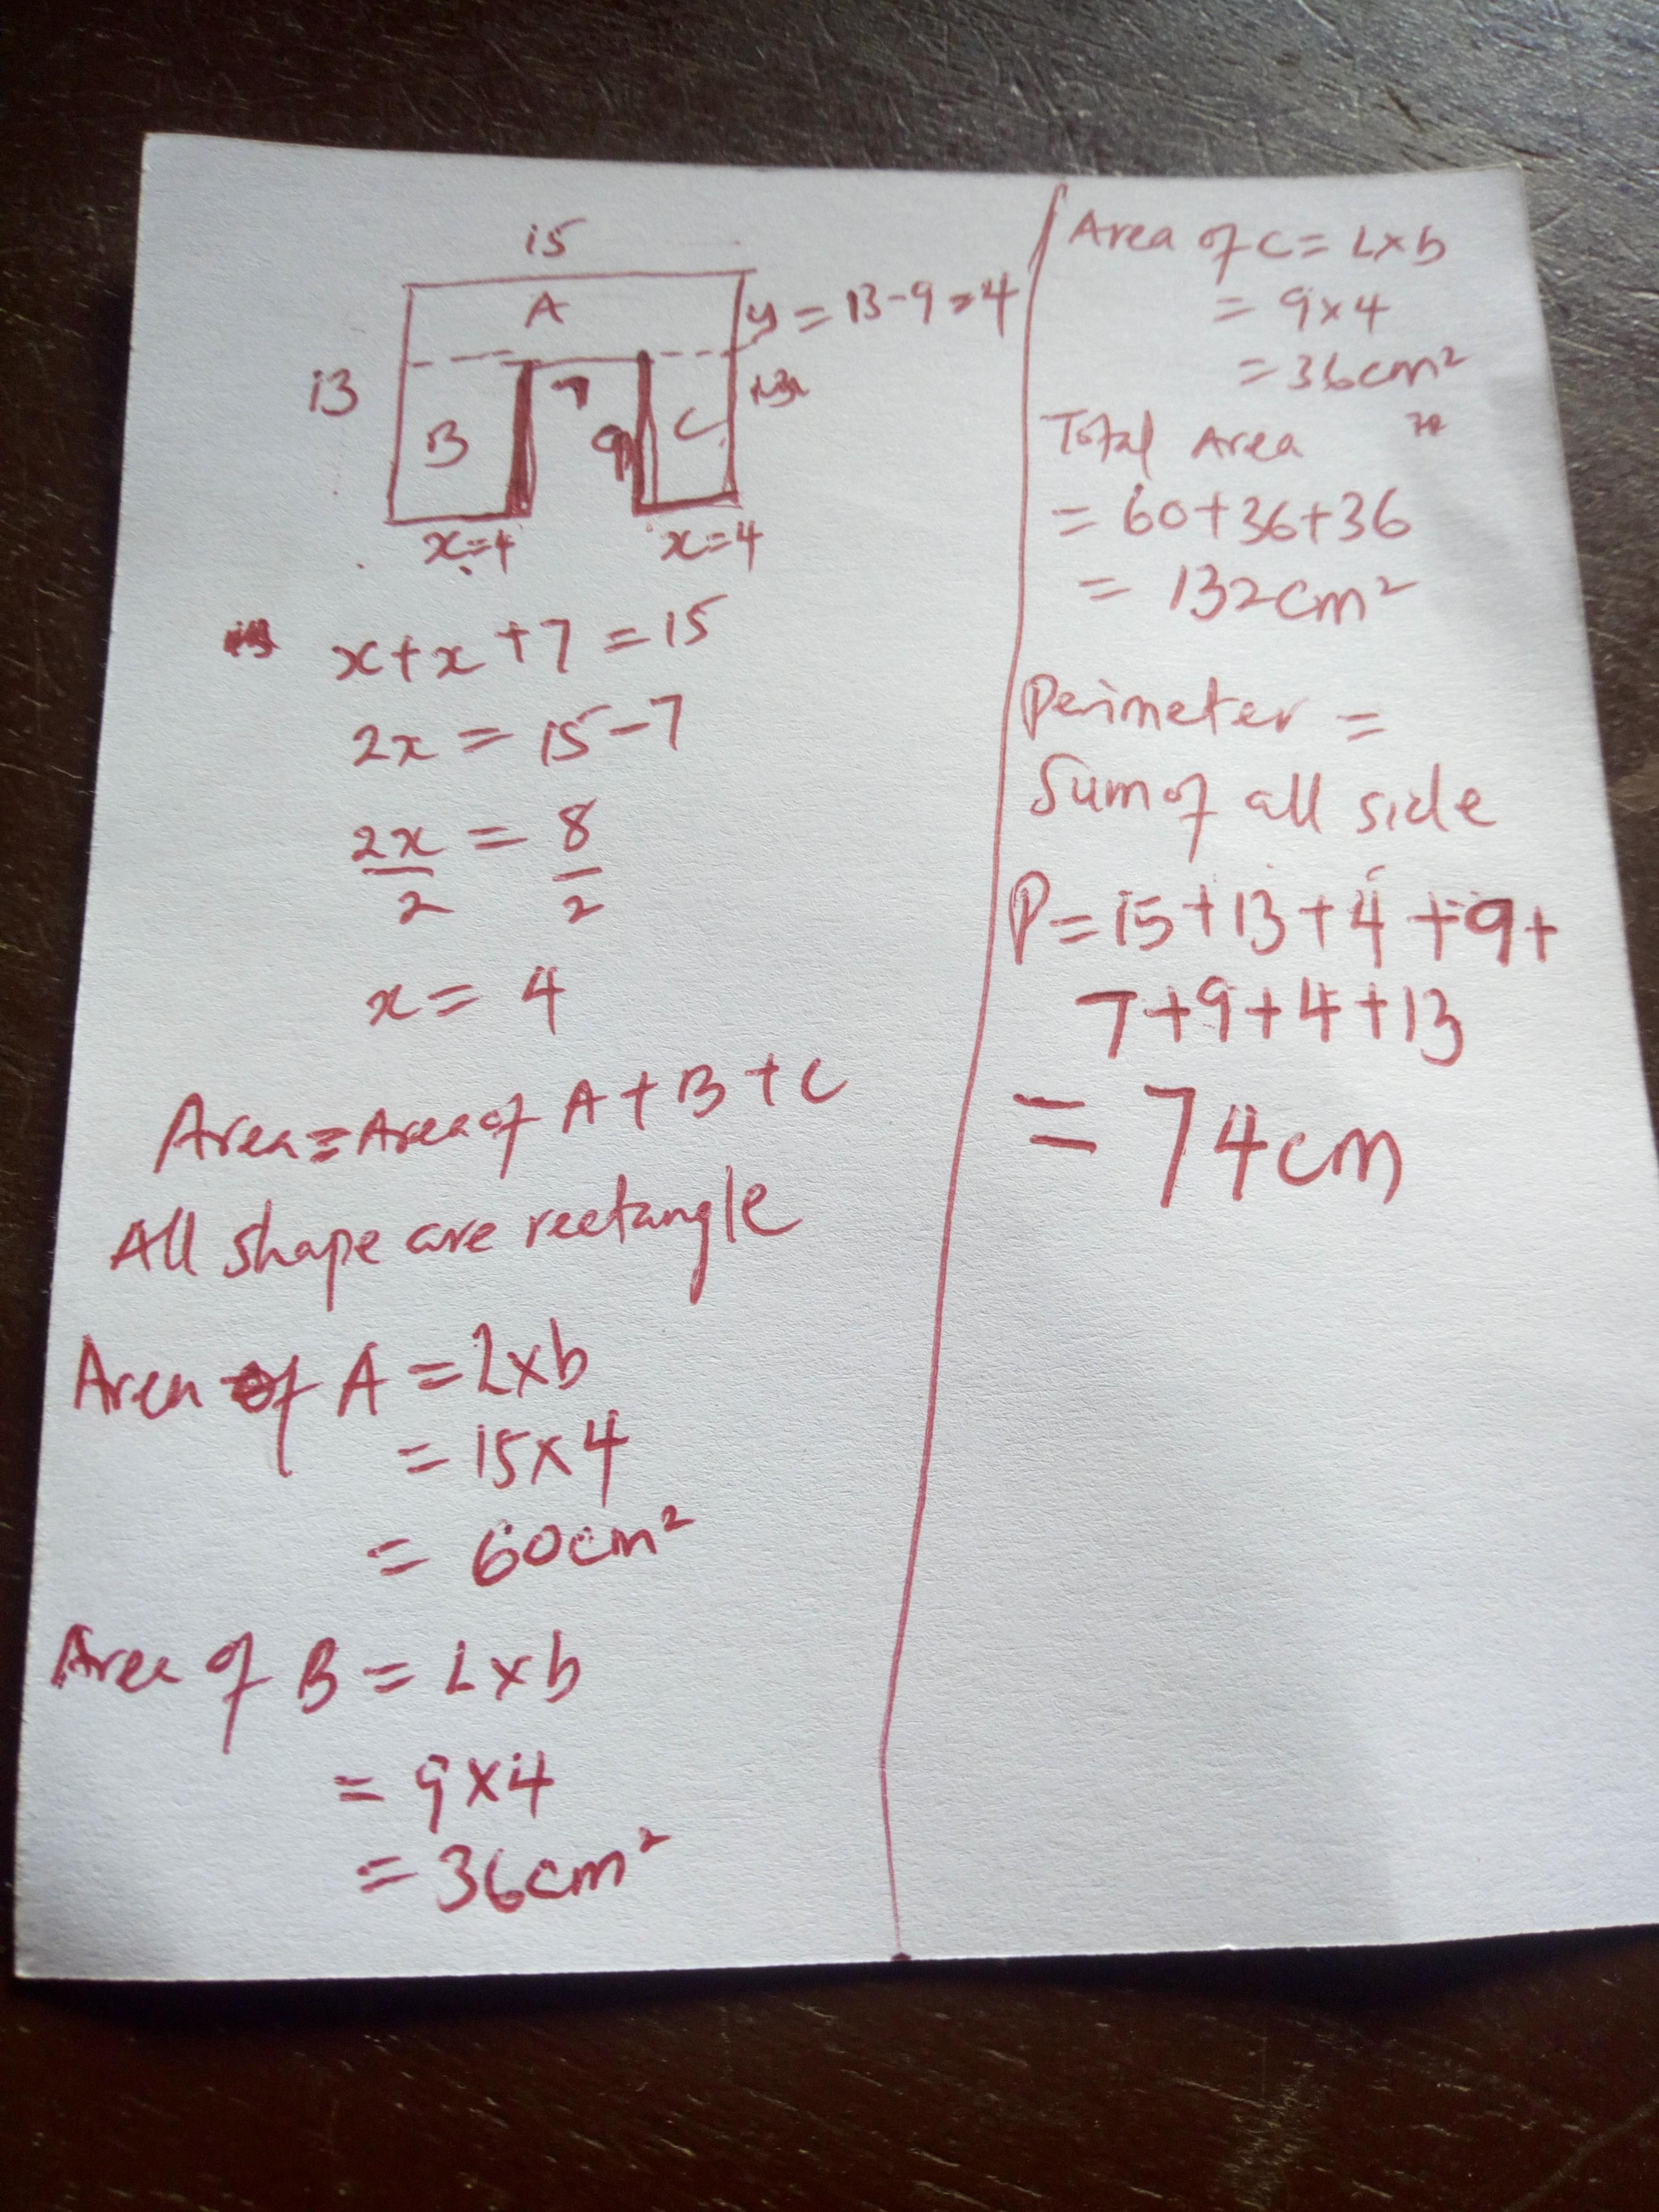 15
A
y = 13-9=4
13
7
B
9
C
x=4
x=4
x+x+7=15
2x = 15-7
2x = 8
2 2
x = 4
Area = Area of A+B+C
All shape are rectangle
Area of A = L×b
= 15×4
= 60cm²
Area of B = L×b
= 9×4
= 36cm²
Area of C = L×b
= 9×4
= 36cm²
Total Area
= 60+36+36
= 132cm²
Perimeter =
Sum of all side
P=15+13+4+9+
7+9+4+13
= 74cm